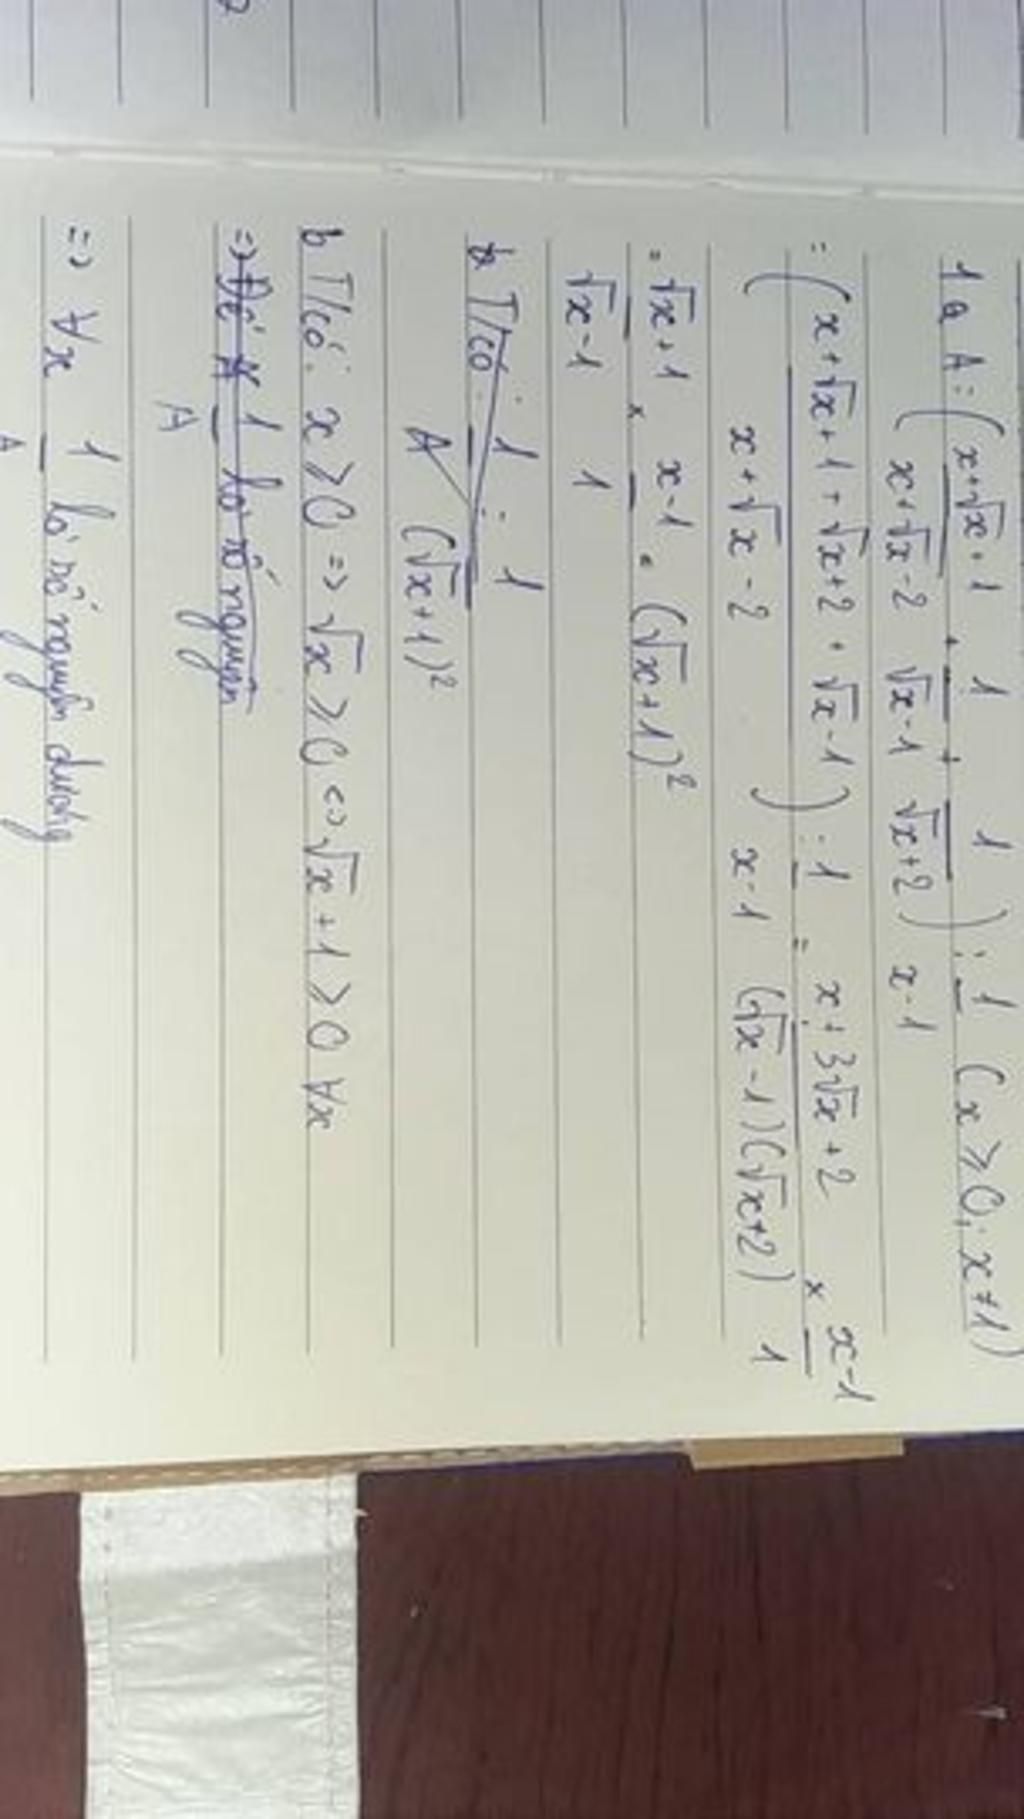 1 a A = ( x+√x+1 / x+√x-2 + 1 / √x-1 + 1 / √x+2 ) : 1 / x-1 (x ≥ 0; x ≠ 1)
= ( x+√x+1 + √x+2 + √x-1 / x+√x-2 ) : 1 / x-1 = x+3√x+2 / (√x-1)(√x+2) × x-1 / 1
= √x+1 / √x-1 × x-1 / 1 = (√x+1)²
b T/có: 1 / A = 1 / (√x+1)²
b T/có: x ≥ 0 => √x ≥ 0 <=> √x+1 ≥ 0 ∀x
=> Để 1 / A là số nguyên
=> ∀x 1 / A là số nguyên dương